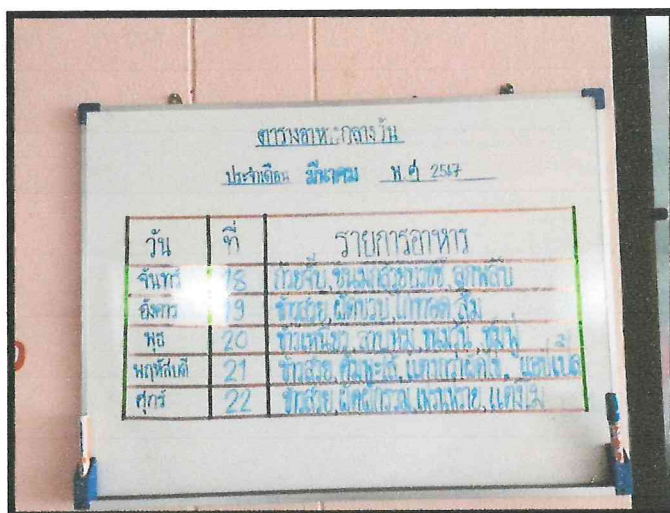 ตารางอาหารกลางวัน
ประจำเดือน มีนาคม พ.ศ 2567
วัน ที่ รายการอาหาร
จันทร์ 18 ก๋วยจั๊บ, ลูกพลับ
อังคาร 19 ข้าวสวย, ผัดบวบ, ไก่ทอด, ส้ม
พุธ 20 ข้าวเหนียว, ลาบหมู, ชมพู่
พฤหัสบดี 21 ข้าวสวย, แอปเปิ้ล
ศุกร์ 22 ข้าวสวย, ผัดผักรวม, แตงโม